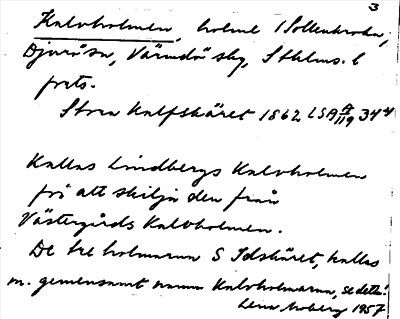 3
Kalvholmen, holme i Sollenkroka,
Djurö sn, Värmdö skg, Sthlms. l
forts.
Stora Kalfskäret 1862 LSA A/119 34
Kallas Lindbergs Kalvholmen
för att skilja den från
Västergårds Kalvholmen.
De tre holmarna S Idskäret, kallas
m. gemensamt namn Kalvholmarna, se detta!
Lena Moberg 1957